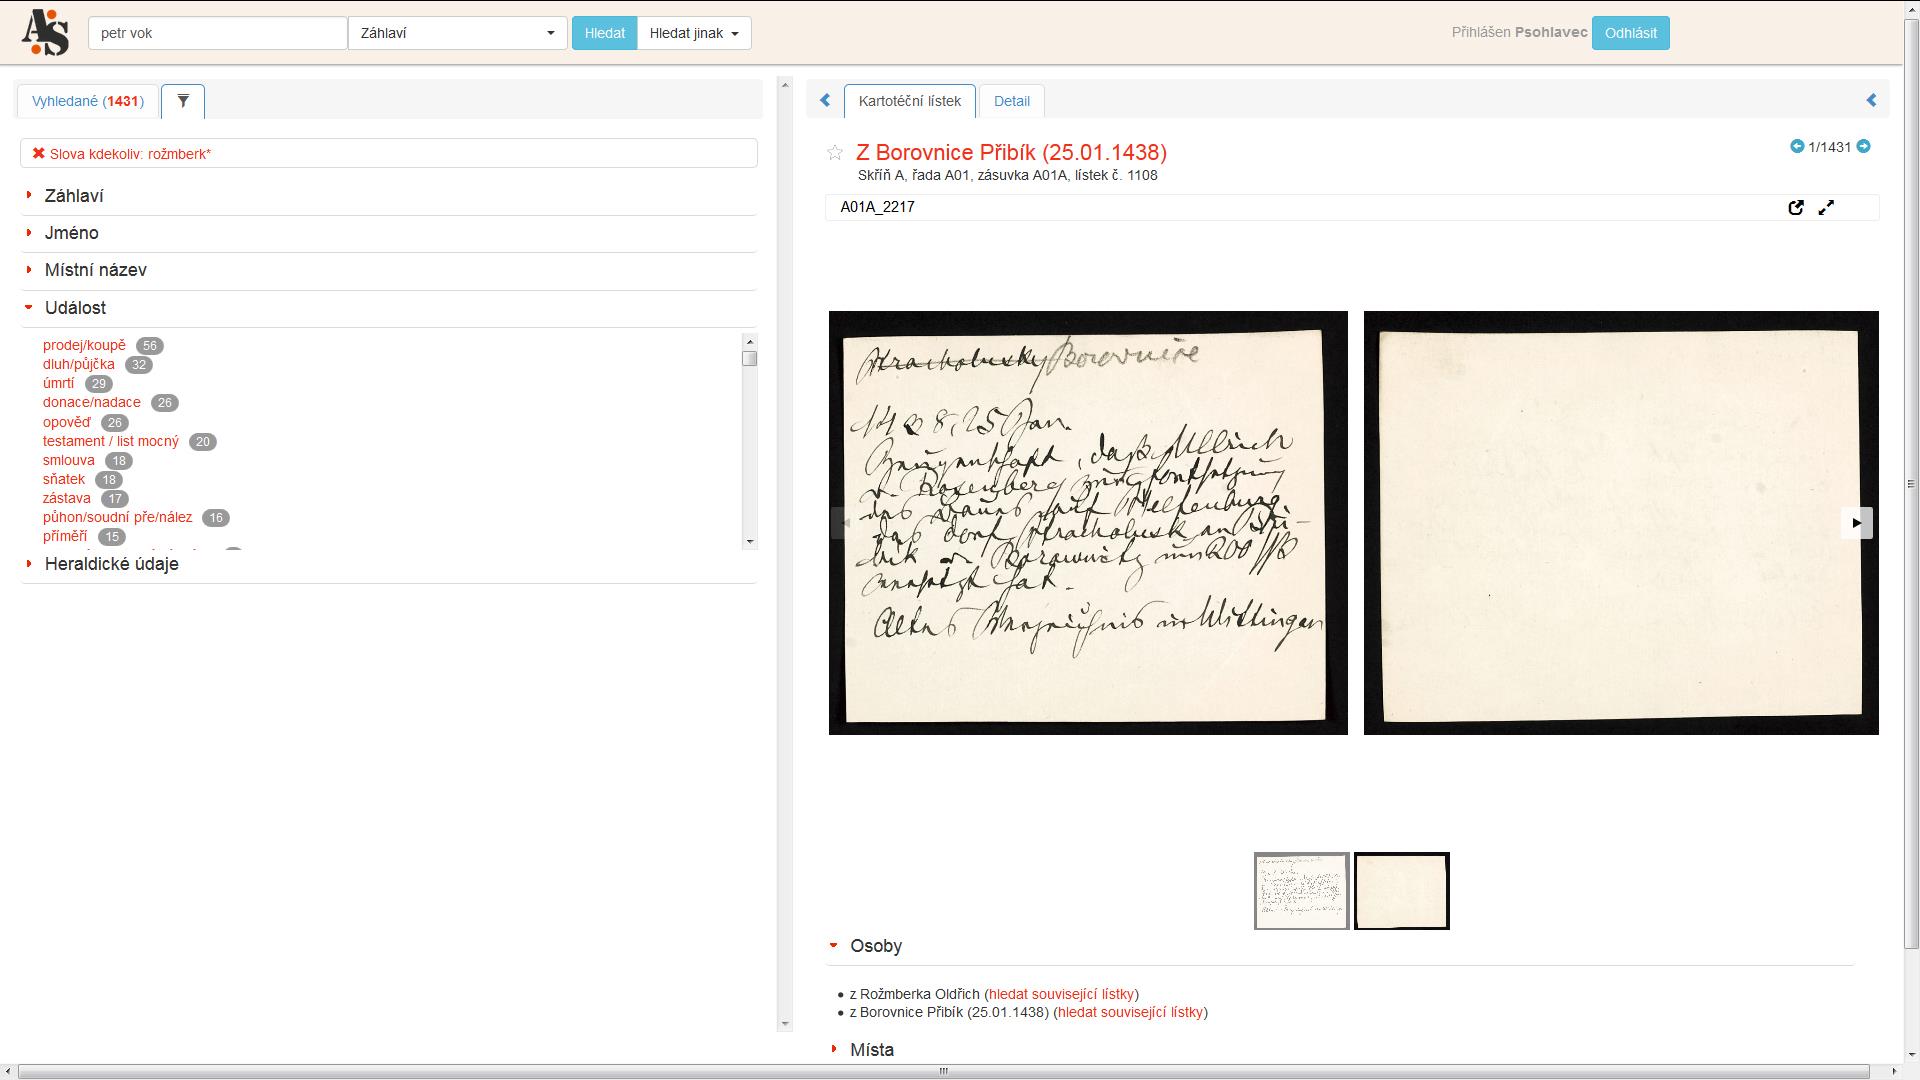 AS
petr vok
Záhlaví
Hledat
Hledat jinak
Přihlášen Psohlavec
Odhlásit
Vyhledané (1431)
Slova kdekoliv: rožmberk*
Záhlaví
Jméno
Místní název
Událost
prodej/koupě 56
dluh/půjčka 32
úmrtí 29
donace/nadace 26
opověď 26
testament / list mocný 20
smlouva 18
sňatek 18
zástava 17
půhon/soudní pře/nález 16
příměří 15
Heraldické údaje
Kartotéční lístek
Detail
Z Borovnice Přibík (25.01.1438)
1/1431
Skříň A, řada A01, zásuvka A01A, lístek č. 1108
A01A_2217
Borovnice
1438, 25 Jan.
Zeugenschaft, daß Ullrich
v. Rosenberg zur Fortsetzung
des Baues auf Helfenburg
das Dorf Strachobusk an Při-
bik v. Borownitz um 200 ß
versetzt hat.
Altes Verzeichnis in Wittingau
Osoby
z Rožmberka Oldřich (hledat související lístky)
z Borovnice Přibík (25.01.1438) (hledat související lístky)
Místa